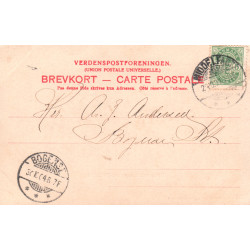 VERDENSPOSTFORENINGEN.
(UNION POSTALE UNIVERSELLE.)
BREVKORT — CARTE POSTALE
Paa denne Side skrives kun Adressen. Côté réservé à l'adresse.
Hr. A. J. Andersen
Bogense St.
BOGENSE